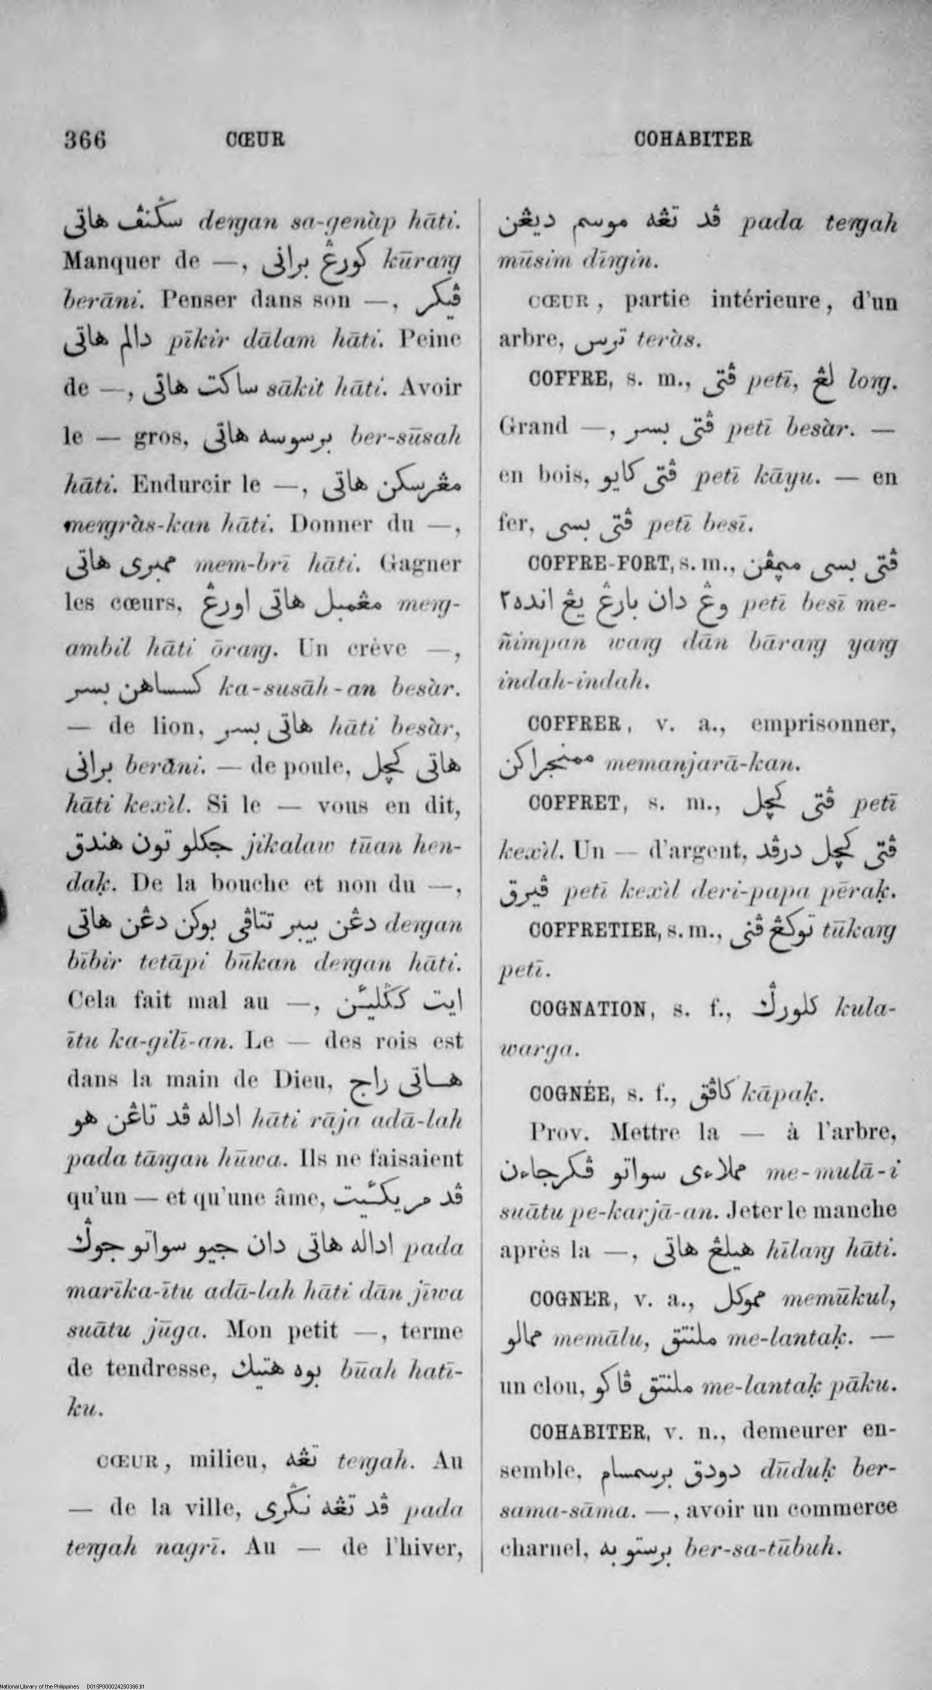 366
CŒUR
COHABITER
سڬنڤ هاتي deṅgan sa-genàp hāti.
Manquer de —, كورڠ براني kūraṅg
berāni. Penser dans son —, ڤيكر
دالم هاتي pīkir dālam hāti. Peine
de —, ساكت هاتي sākit hāti. Avoir
le — gros, برسوسه هاتي ber-sūsah
hāti. Endurcir le —, مڠرسكن هاتي
meṅgràs-kan hāti. Donner du —,
ممبري هاتي mem-brī hāti. Gagner
les cœurs, مڠمبل هاتي اورڠ meṅg-
ambil hāti ōraṅg. Un crève —,
كسساهن بسر ka-susāh-an besàr.
— de lion, هاتي بسر hāti besàr,
براني berāni. — de poule, هاتي كچل
hāti kexìl. Si le — vous en dit,
جكلو تون هندق jikalaw tūan hen-
daḳ. De la bouche et non du —,
دڠن بيبر تتاڤي بوكن دڠن هاتي deṅgan
bībir tetāpi būkan deṅgan hāti.
Cela fait mal au —, ايت كڬليـٔن
ītu ka-gilī-an. Le — des rois est
dans la main de Dieu, هاتي راج
اداله ڤد تاڠن هو hāti rāja adā-lah
pada tāṅgan hūwa. Ils ne faisaient
qu'un — et qu'une âme, ڤد مريكـٔيت
اداله هاتي دان جيو سواتو جوڬ pada
marīka-ītu adā-lah hāti dān jīwa
suātu jūga. Mon petit —, terme
de tendresse, بوه هتيك būah hatī-
ku.
CŒUR, milieu, تڠه teṅgah. Au
— de la ville, ڤد تڠه نڬري pada
teṅgah nagrī. Au — de l'hiver,
ڤد تڠه موسم ديڠن pada teṅgah
mūsim dīṅgin.
CŒUR, partie intérieure, d'un
arbre, ترس teràs.
COFFRE, s. m., ڤتي petī, لڠ loṅg.
Grand —, ڤتي بسر petī besàr. —
en bois, ڤتي كايو petī kāyu. — en
fer, ڤتي بسي petī besī.
COFFRE-FORT, s. m., ڤتي بسي مڽمڤن
وڠ دان بارڠ يڠ انده٢ petī besī me-
ñimpan waṅg dān bāraṅg yaṅg
indah-indah.
COFFRER, v. a., emprisonner,
ممنجراكن memanjarā-kan.
COFFRET, s. m., ڤتي كچل petī
kexìl. Un — d'argent, ڤتي كچل درڤد
ڤيرق petī kexìl deri-papa pēraḳ.
COFFRETIER, s. m., توكڠ ڤتي tūkaṅg
petī.
COGNATION, s. f., كلورڬ kula-
warga.
COGNÉE, s. f., كاڤق kāpaḳ.
Prov. Mettre la — à l'arbre,
مملاءي سواتو ڤكرجاءن me-mulā-i
suātu pe-karjā-an. Jeter le manche
après la —, هيلڠ هاتي hīlaṅg hāti.
COGNER, v. a., مموكل memūkul,
ممالو memālu, ملنتق me-lantaḳ. —
un clou, ملنتق ڤاكو me-lantaḳ pāku.
COHABITER, v. n., demeurer en-
semble, دودق برسمسام dūduḳ ber-
sama-sāma. —, avoir un commerce
charnel, برستوبه ber-sa-tūbuh.
National Library of the Philippines